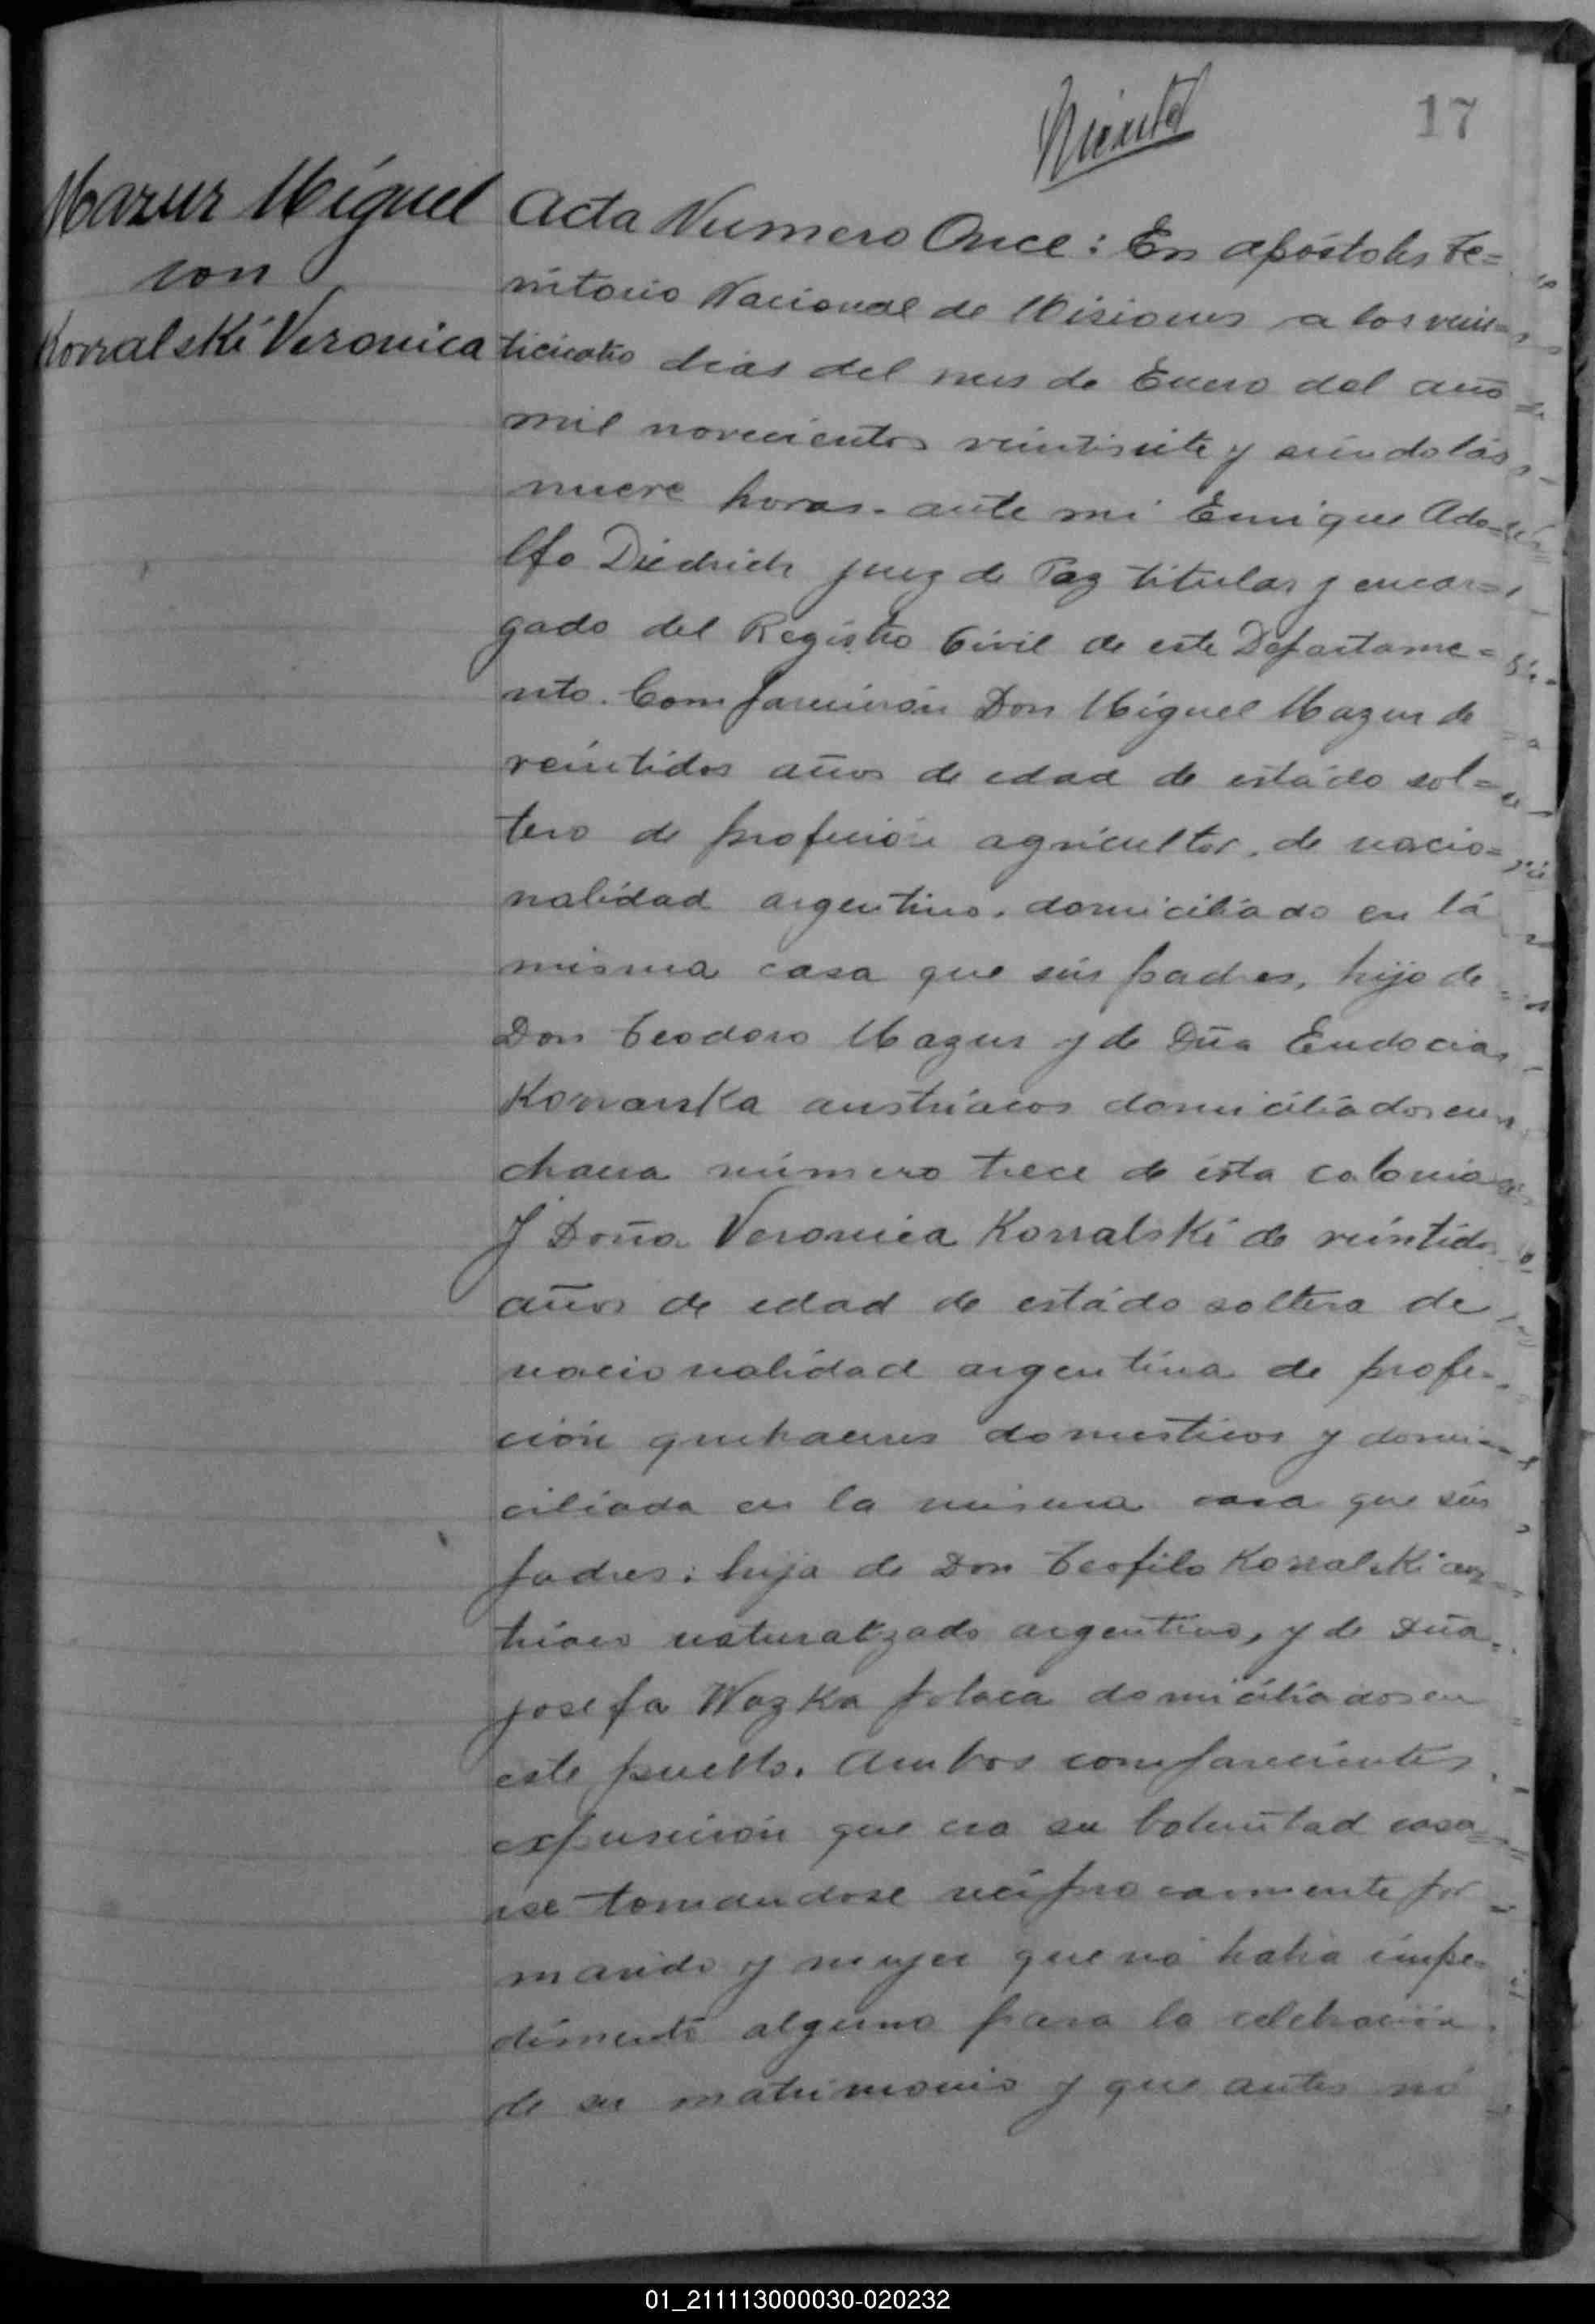 17
Mazur Miguel
con
Kowalski Veronica
Acta Numero Once: En apóstoles te=
rritorio Nacional de Misiones a los vein=
ticuatro dias del mes de Enero del año
mil novecientos veintisiete y siendo las
nueve horas. ante mi Enrique Ado=
lfo Diedrich juez de Paz titular y encar=
gado del Registro Civil de este Departame=
nto. Comparecieron Don Miguel Mazur de
veintidos años de edad de estado sol=
tero de profeción agricultor, de nacio=
nalidad argentino, domiciliado en la
misma casa que sus padres, hijo de
Don Teodoro Mazur y de Dña Eudocia
Kowanska austriacos domiciliados en
chacra número trece de esta colonia
Y Doña Veronica Kowalski de veintidos
años de edad de estado soltera de
nacionalidad argentina de profe=
ción quehaceres domesticos y domi=
ciliada en la misma casa que sus
padres: hija de Don Teofilo Kowalski aus
triaco naturalizado argentino, y de Dña
Josefa Wozka polaca domiciliados en
este pueblo. Ambos comparecientes
expusieron que era su boluntad casa=
rse tomandose reciprocamente por
marido y mujer que no habia impe=
dimento alguno para la celebración
de su matrimonio y que antes no
01_211113000030-020232